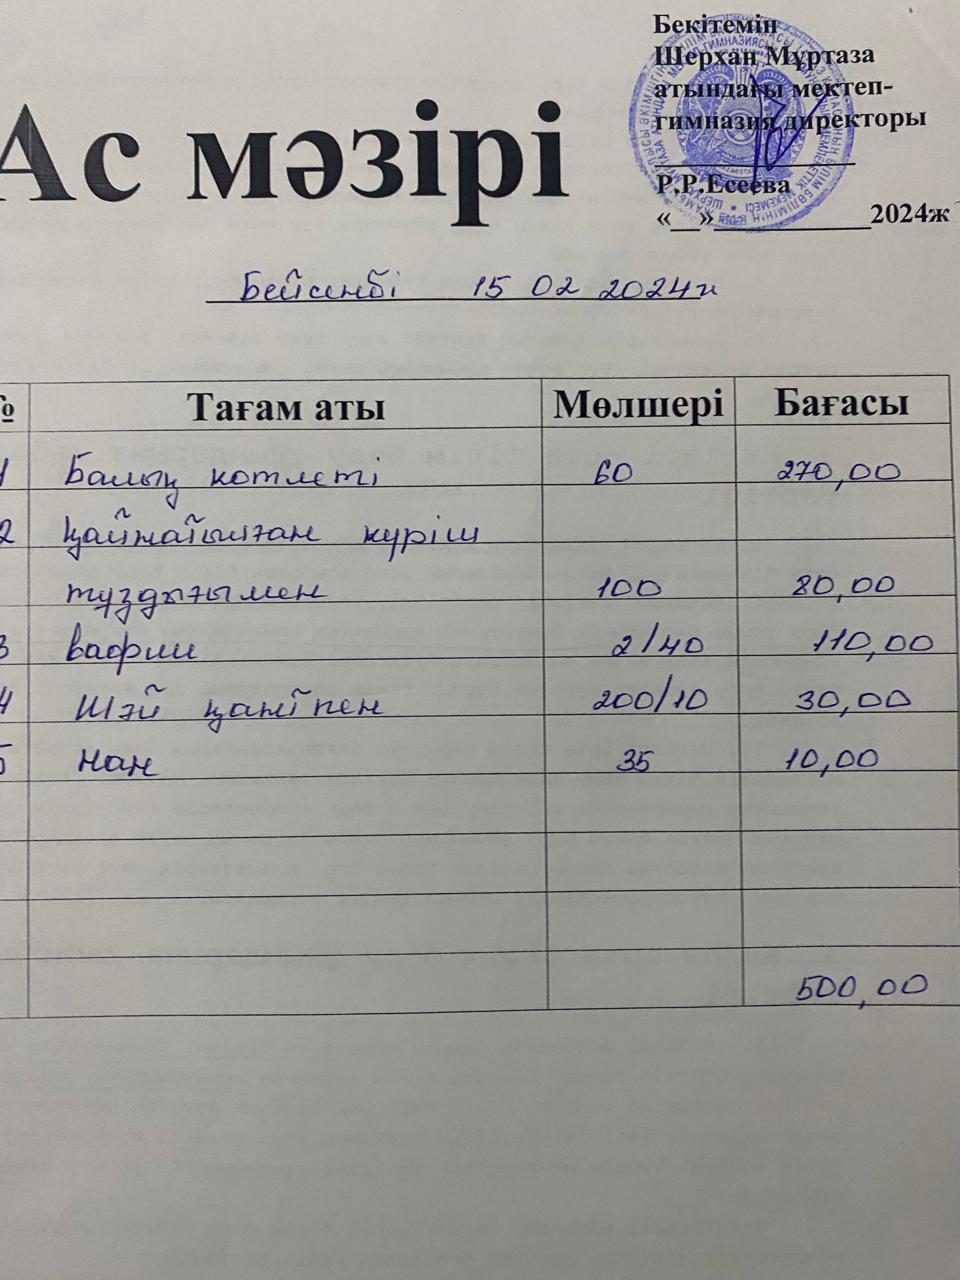 Бекітемін
Шерхан Мұртаза
атындағы мектеп-
гимназия директоры
Р.Р.Есеева
«__»__________2024ж
Ас мәзірі
Бейсенбі 15 02 2024ж
№ Тағам аты Мөлшері Бағасы
1 Балық котлеті 60 270,00
2 Қайнатылған күріш
тұздығымен 100 80,00
3 вафли 2/40 110,00
4 Шәй қантпен 200/10 30,00
5 нан 35 10,00
500,00